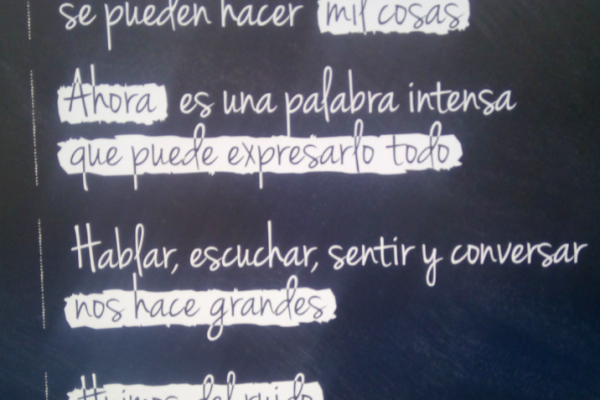 se pueden hacer mil cosas
Ahora es una palabra intensa
que puede expresarlo todo
Hablar, escuchar, sentir y conversar
nos hace grandes
Huimos del ruido